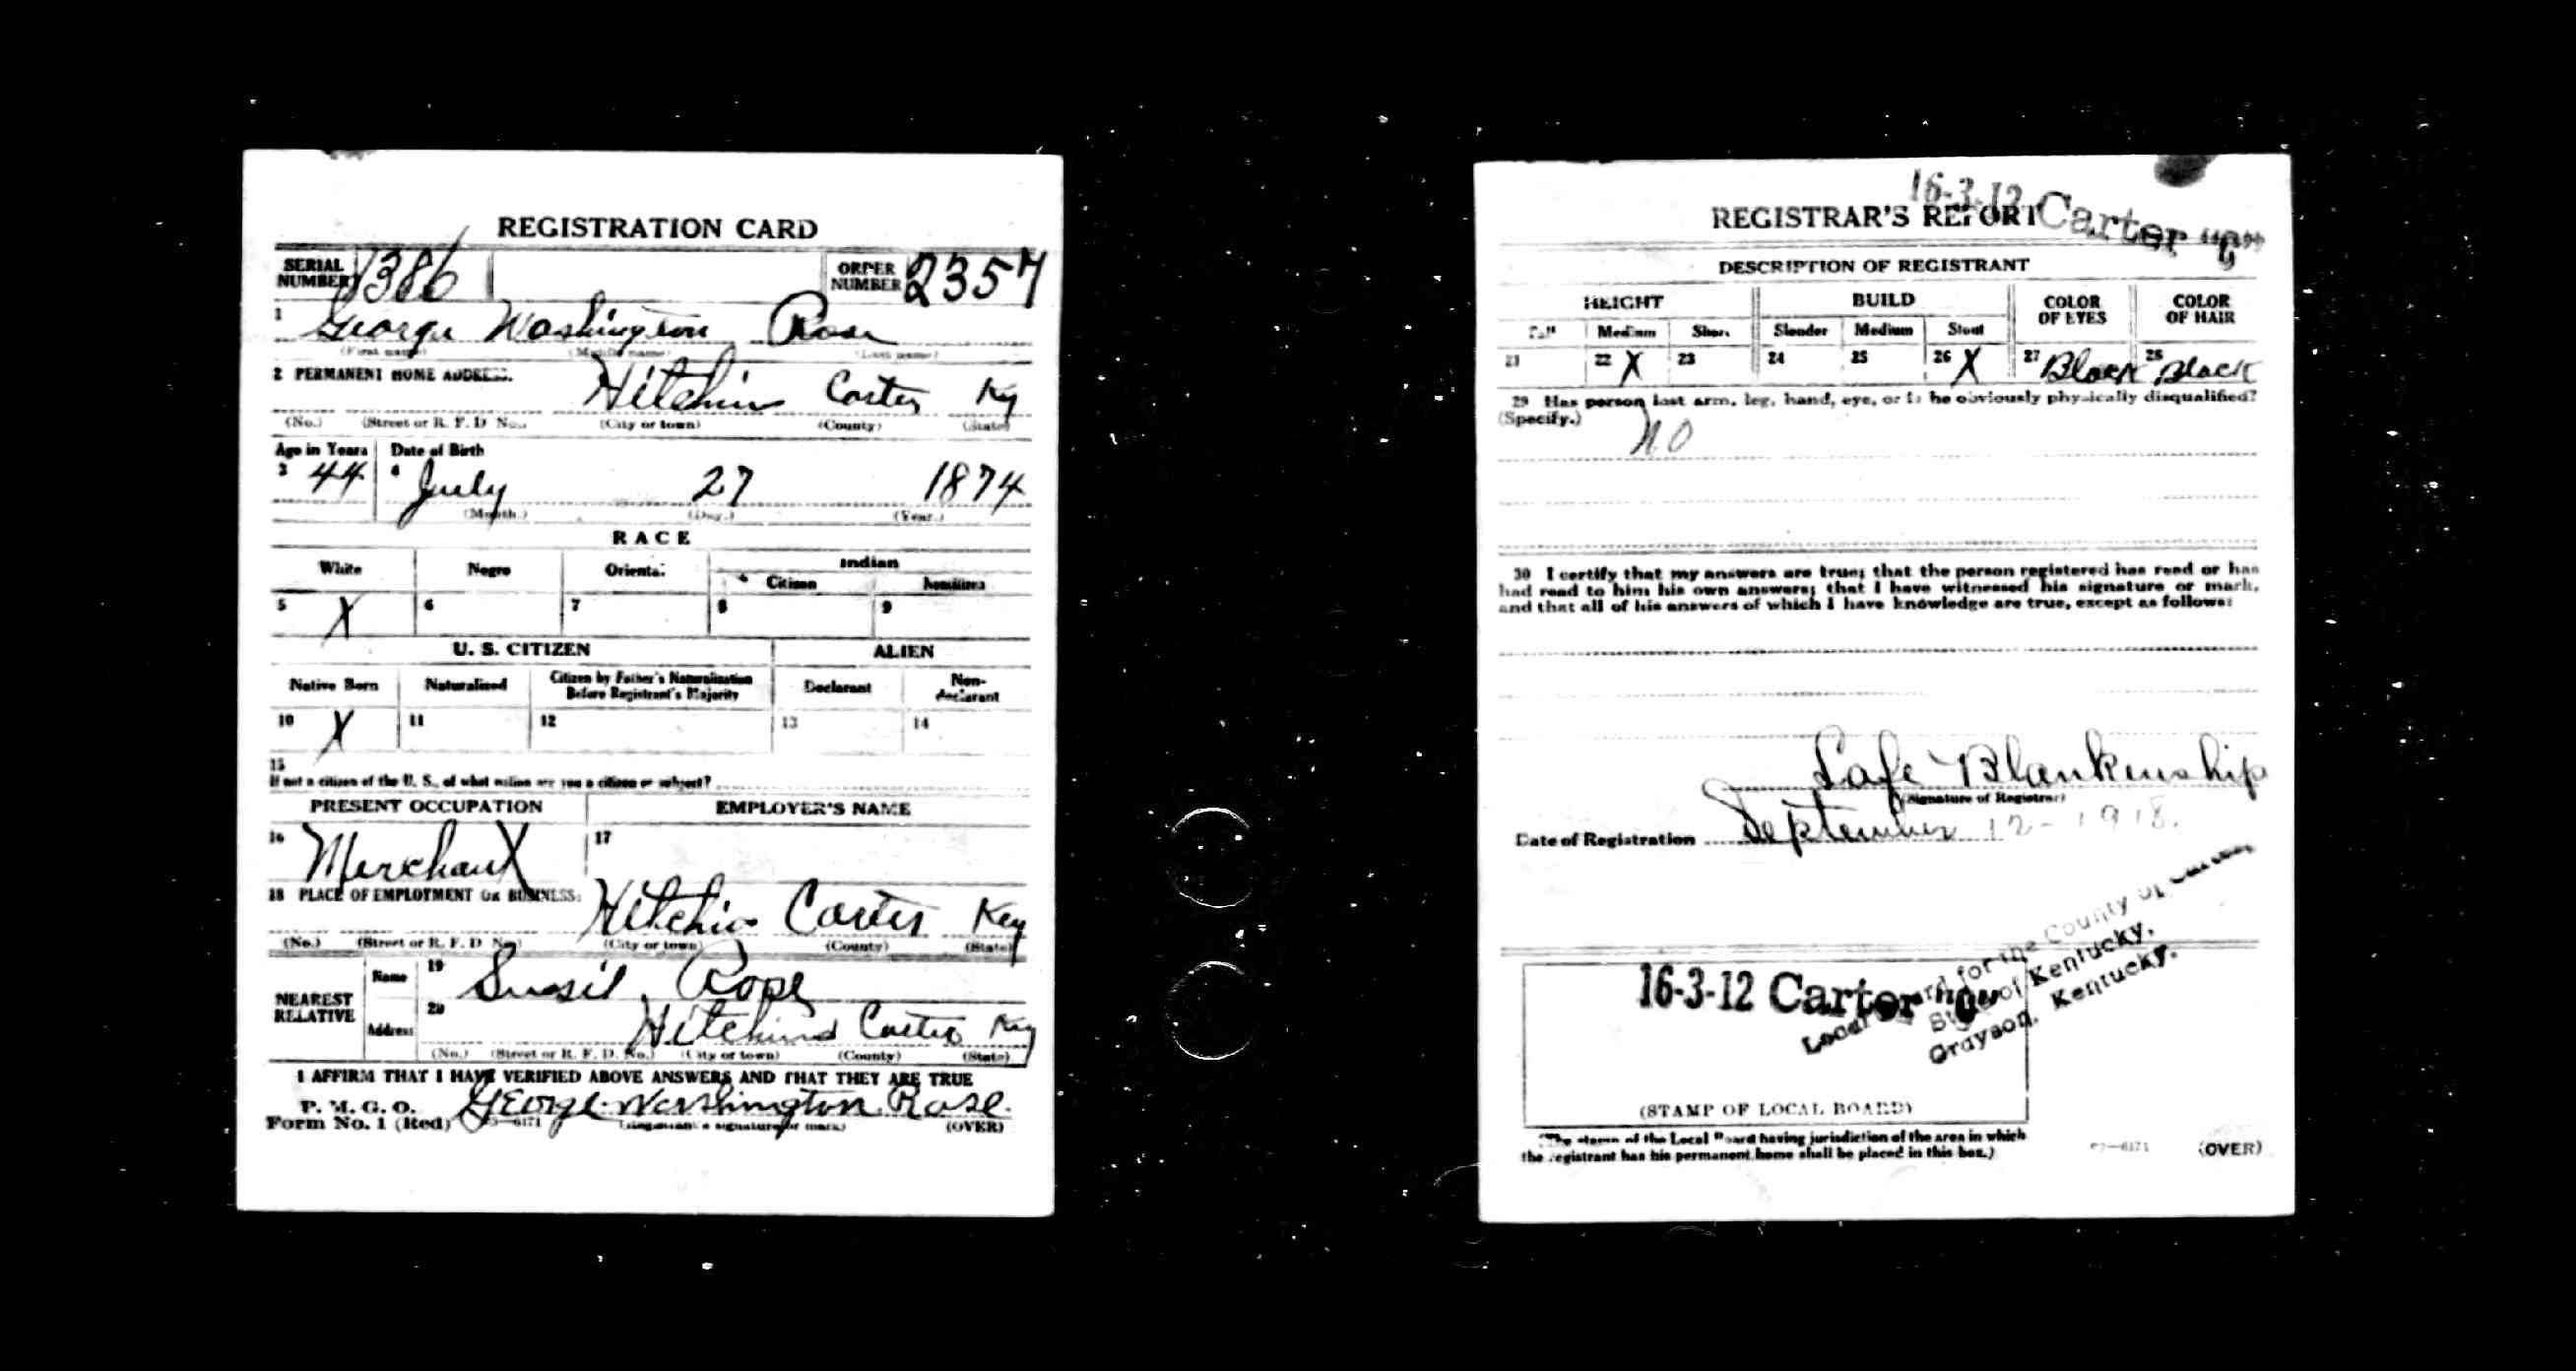 REGISTRATION CARD
SERIAL NUMBER 1386 ORDER NUMBER 2357
1 George Washington Rose
(First name) (Middle name) (Last name)
2 PERMANENT HOME ADDRESS.
Hitchins Carter Ky
(No.) (Street or R. F. D No.) (City or town) (County) (State)
Age in Years Date of Birth
3 44 4 July 27 1874
(Month.) (Day.) (Year.)
RACE
White Negro Oriental Indian
Citizen Noncitizen
5 X 6 7 8 9
U. S. CITIZEN ALIEN
Native Born Naturalized Citizen by Father's Naturalization Before Registrant's Majority Declarant Non-declarant
10 X 11 12 13 14
15
If not a citizen of the U. S., of what nation are you a citizen or subject?
PRESENT OCCUPATION EMPLOYER'S NAME
16 Merchant 17
18 PLACE OF EMPLOYMENT OR BUSINESS:
Hitchins Carter Key
(No.) (Street or R. F. D No.) (City or town) (County) (State)
NEAREST RELATIVE
Name 19 Rose
Address 20 Hitchins Carter Ky
(No.) (Street or R. F. D. No.) (City or town) (County) (State)
I AFFIRM THAT I HAVE VERIFIED ABOVE ANSWERS AND THAT THEY ARE TRUE
P. M. G. O.
Form No. 1 (Red) George Washington Rose
(Registrant's signature or mark) (OVER)
16-3-12 Carter "C"
REGISTRAR'S REPORT
DESCRIPTION OF REGISTRANT
HEIGHT BUILD COLOR OF EYES COLOR OF HAIR
Tall Medium Short Slender Medium Stout
21 22 X 23 24 25 26 X 27 Black 28 Black
29 Has person lost arm, leg, hand, eye, or is he obviously physically disqualified?
(Specify.) NO
30 I certify that my answers are true; that the person registered has read or has
had read to him his own answers; that I have witnessed his signature or mark,
and that all of his answers of which I have knowledge are true, except as follows:
Lafe Blankenship
(Signature of Registrar)
Date of Registration September 12-1918.
16-3-12 Carter "C"
Local Board for the County of Carter,
State of Kentucky,
Grayson, Kentucky.
(STAMP OF LOCAL BOARD)
(The stamp of the Local Board having jurisdiction of the area in which
the registrant has his permanent home shall be placed in this box.)
(OVER)